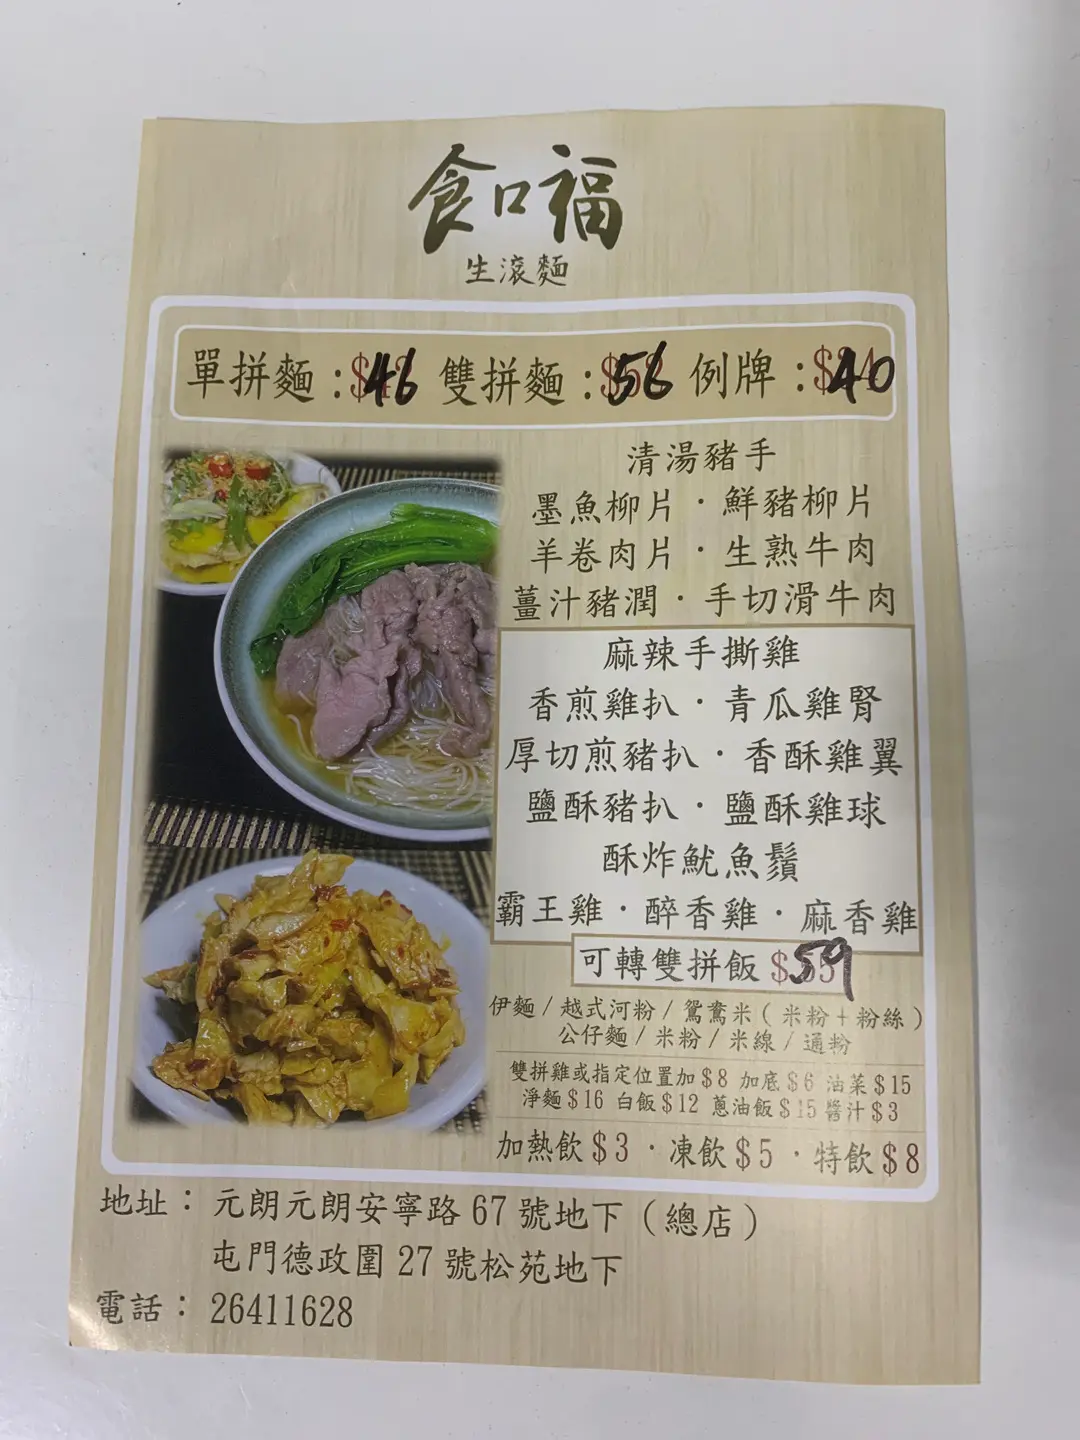 食口福
生滾麵
單拼麵:$46 雙拼麵:$56 例牌:$40
清湯豬手
墨魚柳片·鮮豬柳片
羊卷肉片·生熟牛肉
薑汁豬潤·手切滑牛肉
麻辣手撕雞
香煎雞扒·青瓜雞腎
厚切煎豬扒·香酥雞翼
鹽酥豬扒·鹽酥雞球
酥炸魷魚鬚
霸王雞·醉香雞·麻香雞
可轉雙拼飯 $59
伊麵/越式河粉/鴛鴦米(米粉+粉絲)
公仔麵/米粉/米線/通粉
雙拼雞或指定位置加$8 加底$6 油菜$15
淨麵$16 白飯$12 蔥油飯$15 醬汁$3
加熱飲$3·凍飲$5·特飲$8
地址：元朗元朗安寧路67號地下(總店)
屯門德政圍27號松苑地下
電話：26411628